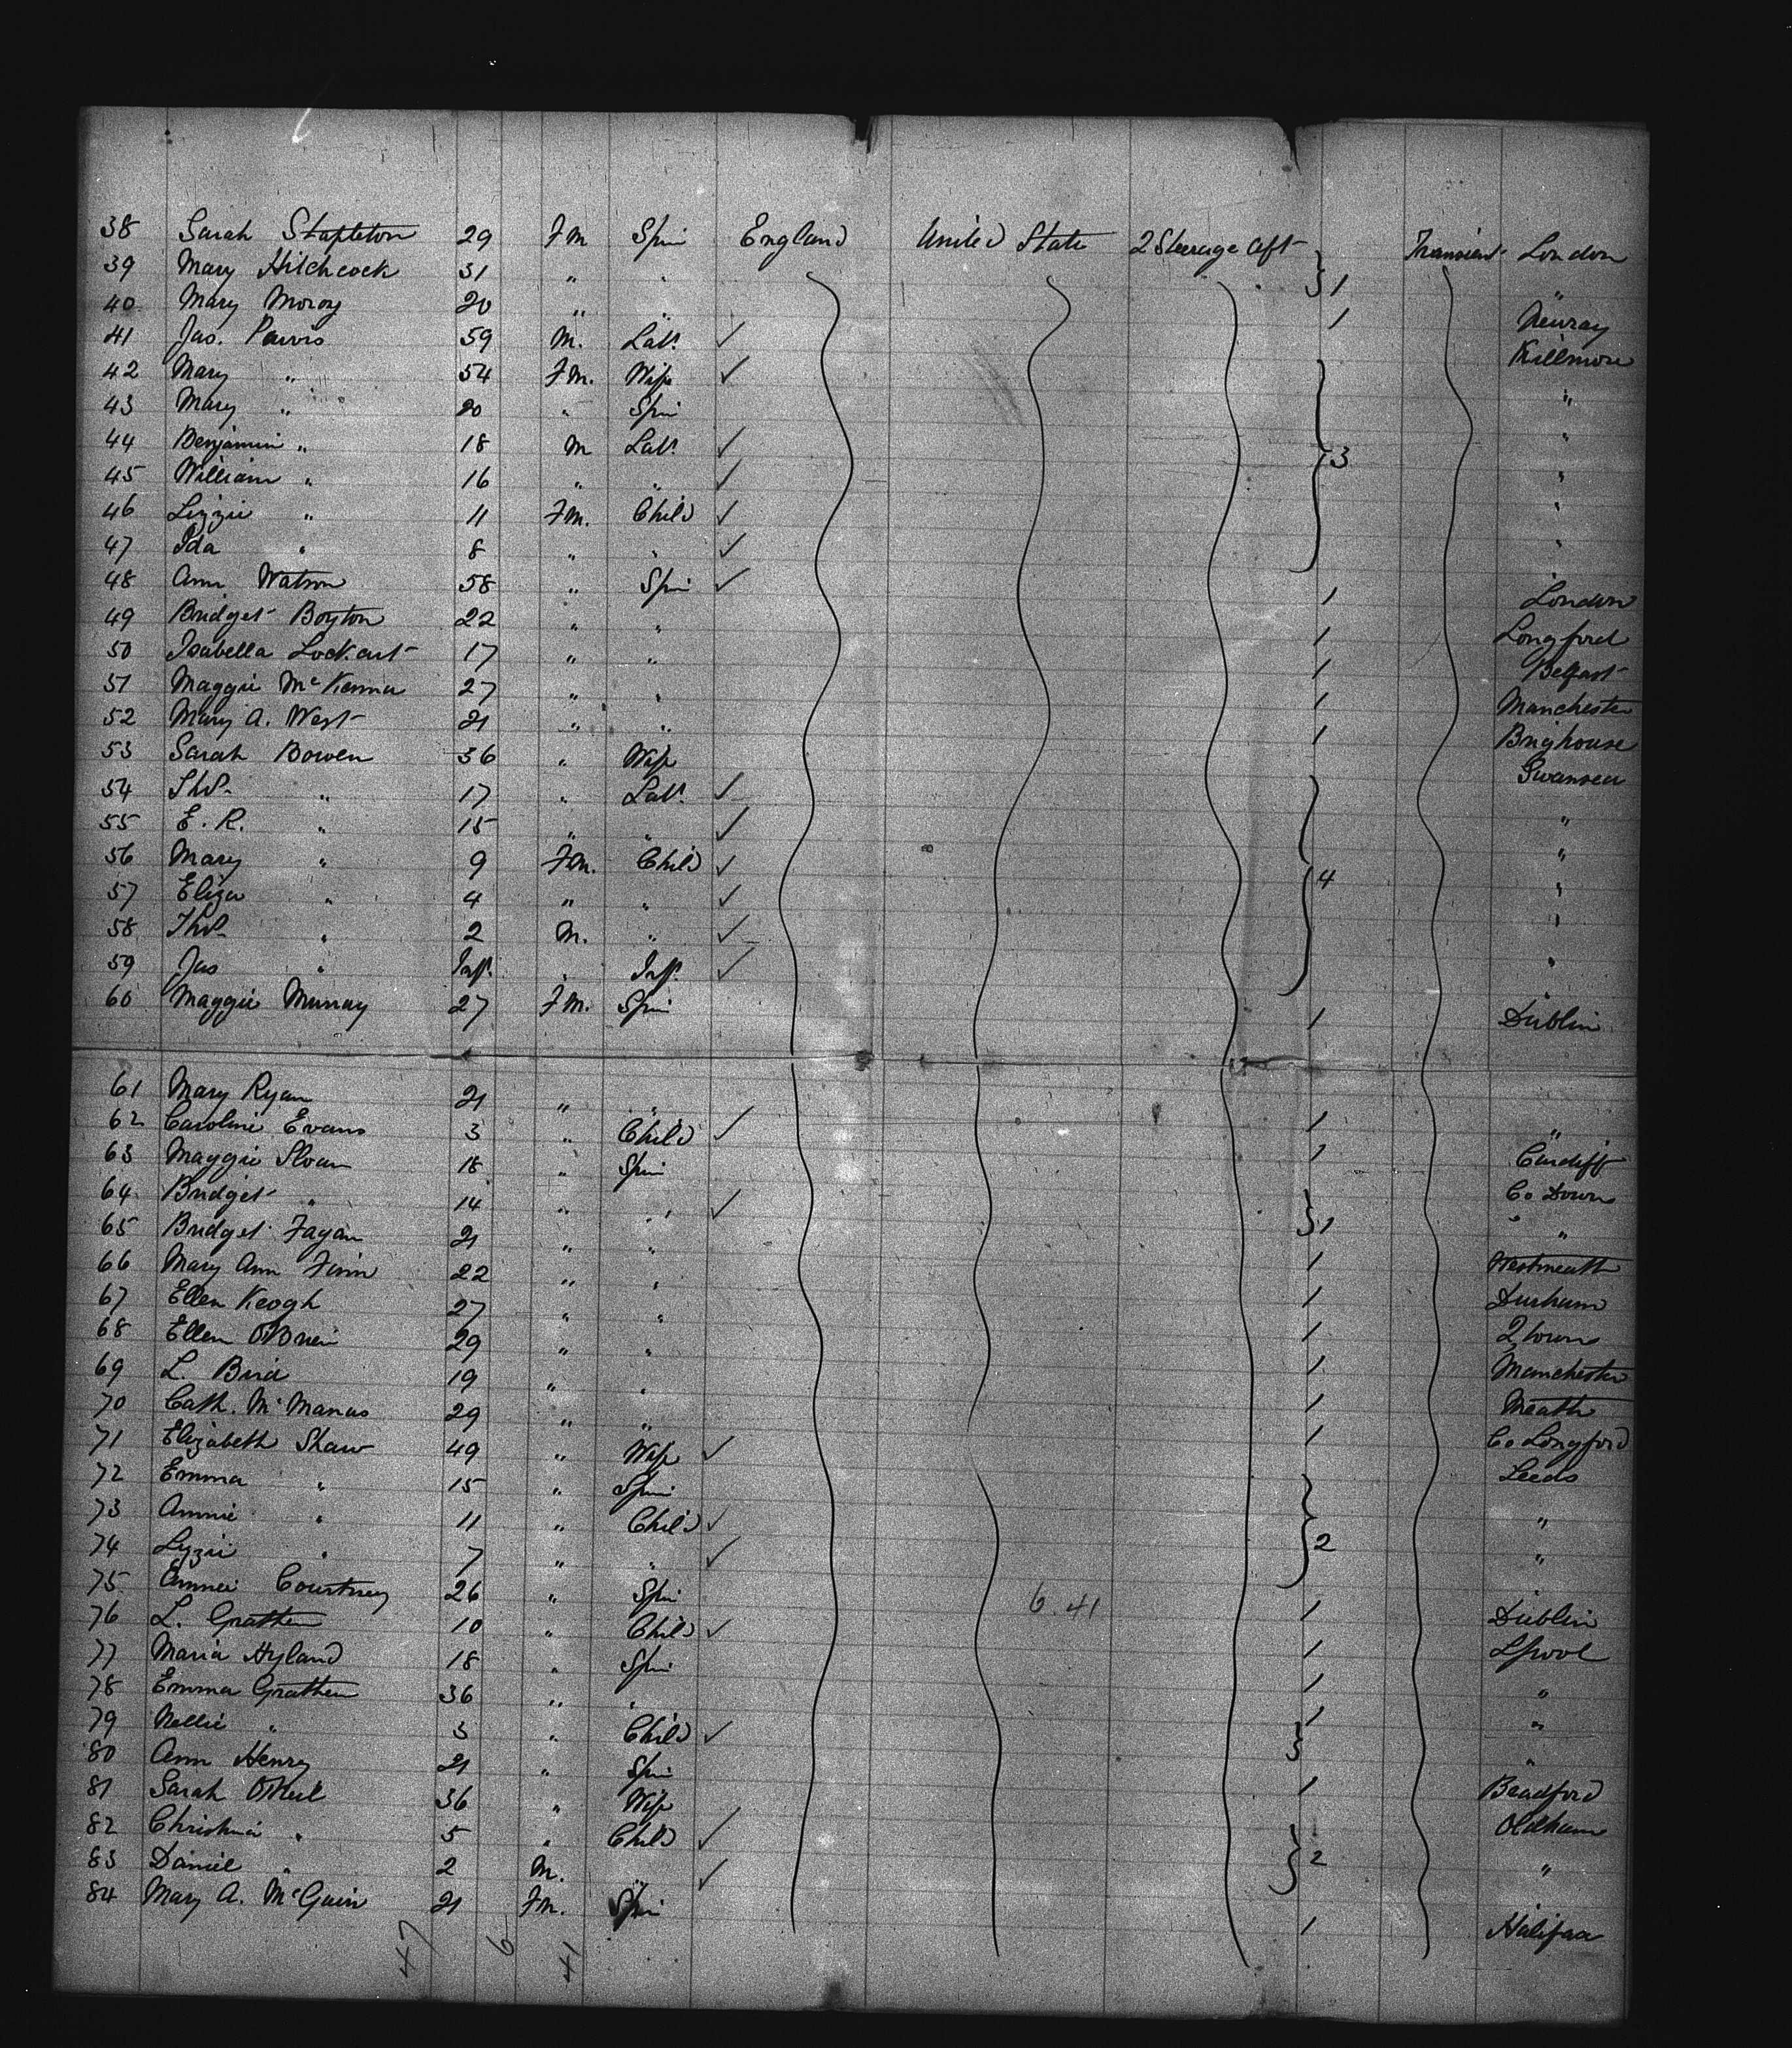 38 Sarah Stapleton 29 Fm Spin England United State 2 Steerage Aft Transient London
39 Mary Hitchcock 31 " " } 1 "
40 Mary Moroy 20 " " 1 Newray
41 Jas. Purvis 59 M. Labr ✓ Killmore
42 Mary " 54 Fm. Wife ✓ "
43 Mary " 20 " Spin "
44 Benjamin " 18 M Labr ✓ } 3 "
45 William " 16 " " ✓ "
46 Lizzie " 11 Fm. Child ✓ "
47 Ida " 8 " " ✓
48 Ann Watson 58 " Spin ✓ 1 London
49 Bridget Boyton 22 " " 1 Longford
50 Isabella Lockart 17 " " 1 Belfast
51 Maggie McKenna 27 " " 1 Manchester
52 Mary A. West 21 " " 1 Brighouse
53 Sarah Bowen 36 " Wife Swansea
54 Thos " 17 " Labr ✓ "
55 E. R. " 15 " " ✓ "
56 Mary " 9 Fm. Child ✓ } 4 "
57 Eliza " 4 " " ✓ "
58 Thos " 2 M. " ✓ "
59 Jas " Inft. " Inft. ✓
60 Maggie Murray 27 Fm. Spin 1 Dublin
61 Mary Ryan 21 " " 1 "
62 Caroline Evans 3 " Child ✓ 1 Cardiff
63 Maggie Sloan 18 " Spin Co Down
64 Bridget " 14 " " ✓ } 1 " "
65 Bridget Fagan 21 " " 1 Westmeath
66 Mary Ann Finn 22 " " 1 Durham
67 Ellen Keogh 27 " " 1 Qtown
68 Ellen O'Brien 29 " " 1 Manchester
69 L. Bird 19 " " 1 Meath
70 Cath. McManus 29 " " 1 Co Longford
71 Elizabeth Shaw 49 " Wife ✓ Leeds
72 Emma " 15 " Spin "
73 Annie " 11 " Child ✓ } 2 "
74 Lyzzie " 7 " " ✓
75 Annie Courtney 26 " Spin 6.41 1 Dublin
76 L. Gratten 10 " Child ✓ 1 Lpool
77 Maria Hyland 18 " Spin 1 "
78 Emma Gratten 36 " " 1 "
79 Nellie " 3 " Child ✓ } "
80 Ann Henry 21 " Spin 1 Bradford
81 Sarah O'Neil 36 " Wife Oldham
82 Christina " 5 " Child ✓ } 2 "
83 Daniel " 2 M. " ✓
84 Mary A. McGuin 21 Fm. Spin 1 Halifax
47 6 41